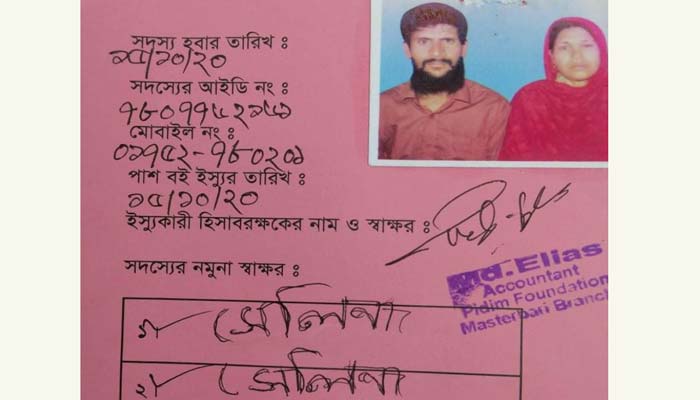 সদস্য হবার তারিখ ঃ
১৫/১০/২০
সদস্যের আইডি নং ঃ
মোবাইল নং ঃ
০১৭৫২-৭৮০২০১
পাশ বই ইস্যুর তারিখ ঃ
১৫/১০/২০
ইস্যুকারী হিসাবরক্ষকের নাম ও স্বাক্ষর ঃ
Md. Elias
Accountant
Pidim Foundation
Masterbari Branch
সদস্যের নমুনা স্বাক্ষর ঃ
১/ সেলিনা
২/ সেলিনা